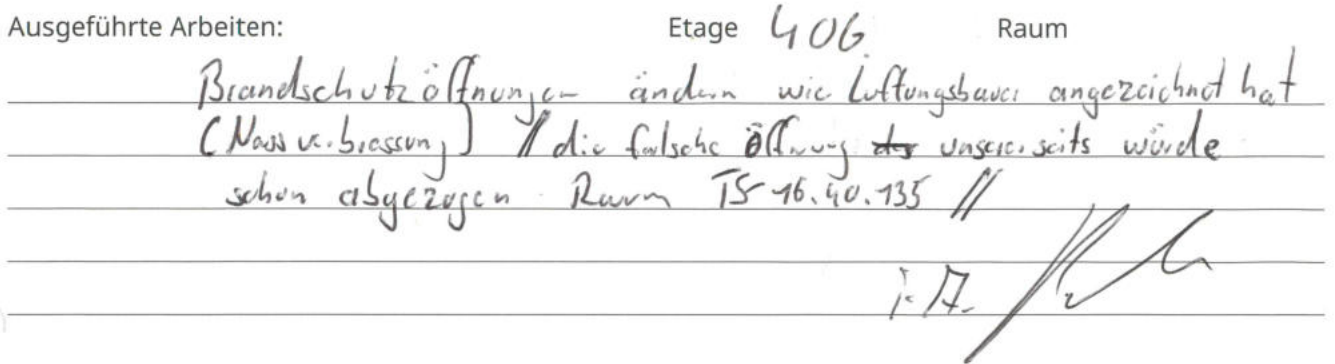 Ausgeführte Arbeiten: Etage 406 Raum
Brandschutzöffnungen ändern wie Lüftungsbauer angezeichnet hat
(Massverbrassung) // die falsche Öffnung unsererseits würde
schon abgezogen Raum TS 16.40.135 //
i.A.